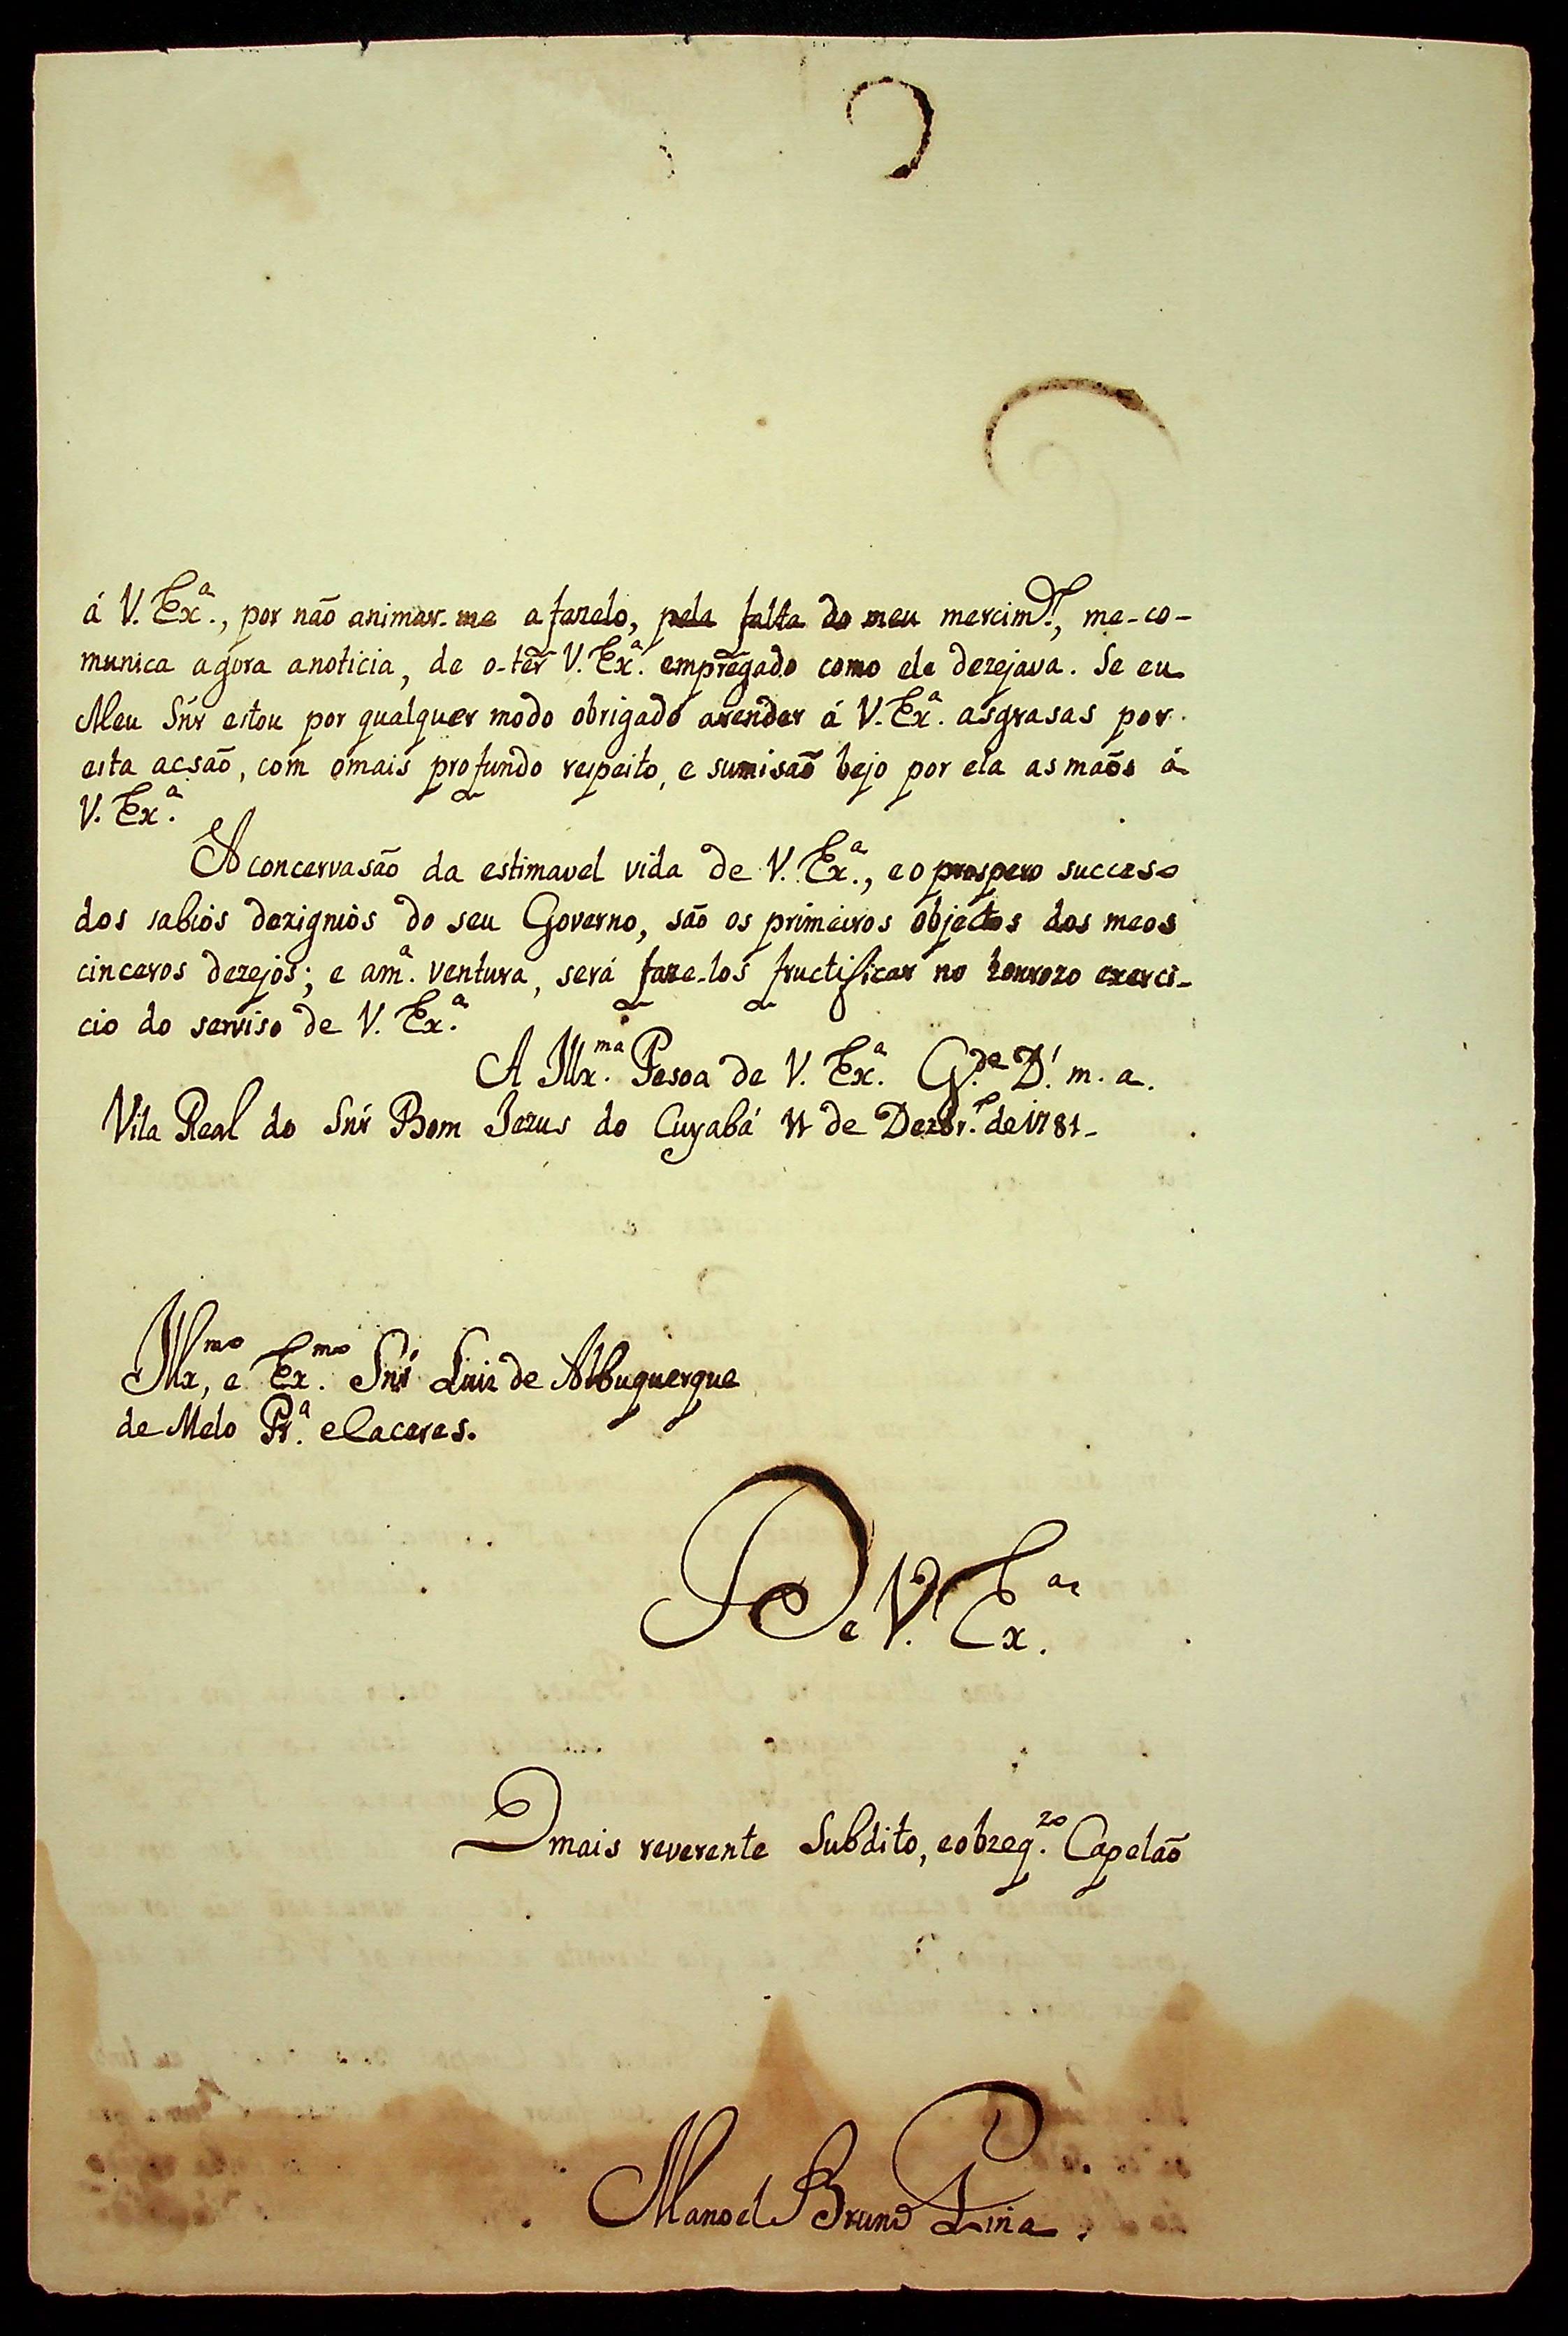 á V. Ex.ª, por não animar-me a fazelo, pela falta do meu mercim.to, me-co-
munica agora anoticia, de o-ter V. Ex.ª empregado como ele dezejava. Se eu
Meu Snr estou por qualquer modo obrigado arender á V. Ex.ª asgrasas por
esta acsão, com omais profundo respeito, e sumisaõ bejo por ela as maõs á
V. Ex.ª
A concervasão da estimavel vida de V. Ex.ª, e o prospero succeso
dos sabios dezignios do seu Governo, são os primeiros objectos dos meos
cinceros dezejos; e am.ª ventura, será faze-los fructificar no honrozo exerci-
cio do serviso de V. Ex.ª
A Illx.ma Pesoa de V. Ex.ª G.de D.s m. a.
Vila Real do Snr Bom Jezus do Cuyabá 11 de Dezbr.º de 1781-
Illx.mo, e Ex.mo Snr Luiz de Albuquerque
de Melo Pr.ª e Caceres.
De V. Ex.ª
O mais reverente Subdito, e obzeq.zo Capelão
Manoel Bruno